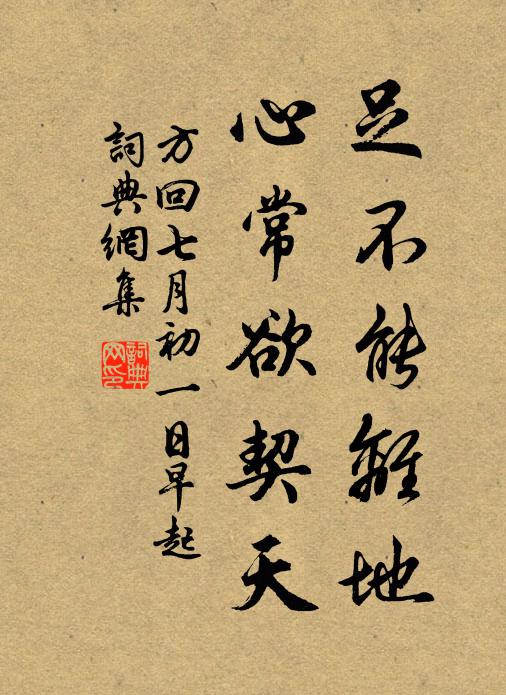 足不能離地
心常欲契天
方回七月初一日早起
詞典網集
詞典
网印